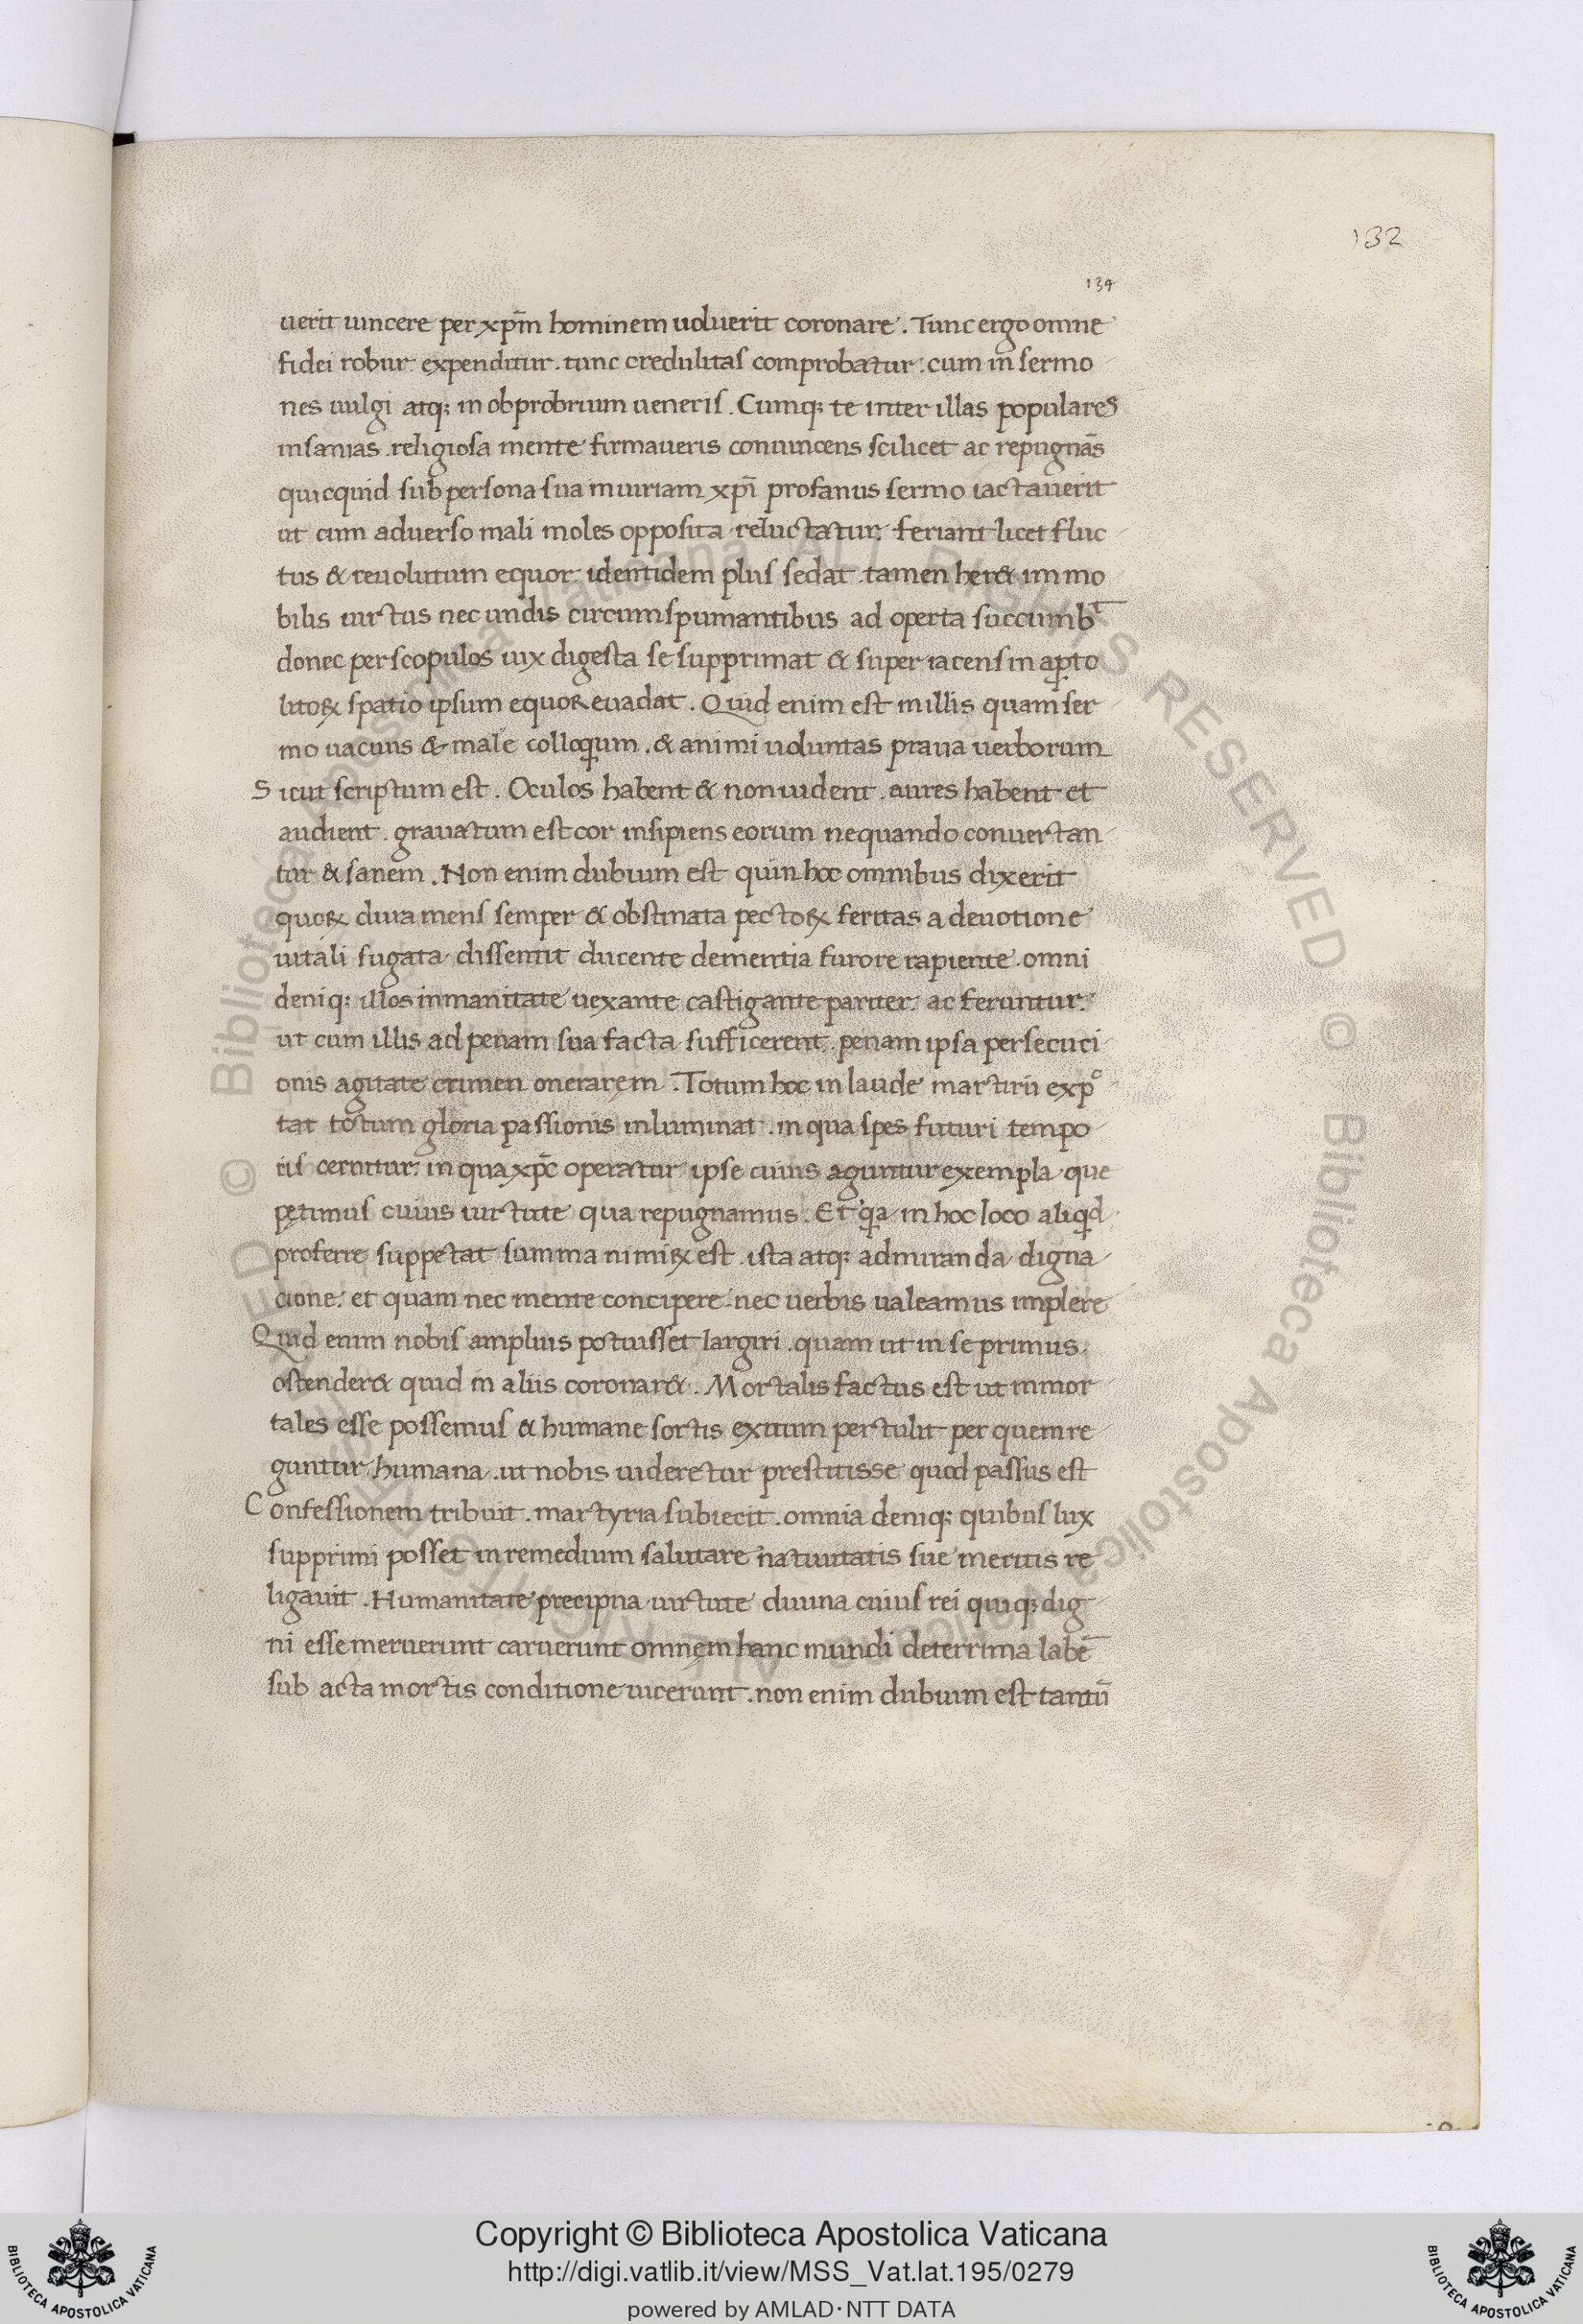 132
134
uerit uincere per xp̄m hominem uoluerit coronare . Tunc ergo omne
fidei robur expenditur . tunc credulitas comprobatur : cum in sermo
nes uulgi atq; in obprobrium ueneris . Cumq; te inter illas populares
insanias . religiosa mente firmaueris conuincens scilicet ac repugnās
quicquid sub persona sua iniuriam xp̄i profanus sermo iactauerit
ut cum aduerso mali moles opposita reluctatur . feriant licet fluc
tus & reuolutum equor identidem plus sedat . tamen her& immo
bilis uirtus nec undis circumspumantibus ad operta succumbt̄
donec per scopulos uix digesta se supprimat & super iacens in ap̱to
litoꝝ spatio ipsum equor euadat . Quid enim est millis quam ser
mo uacuus & male colloqium . & animi uoluntas praua uerborum
Sicut scriptum est . Oculos habent & non uident . aures habent et
audient . grauatum est cor insipiens eorum nequando conuertan
tur & sanem . Non enim dubium est quin hoc omnibus dixerit
quoꝝ diua mens semper & obstinata pectoꝝ feritas a deuotione
uitali fugata dissentit ducente dementia furore rapiente . omni
deniq; illos inmanitate uexante castigante pariter ac feruntur .
ut cum illis ad penam sua facta sufficerent . penam ipsa persecuci
onis agitate crimen onerarem . Totum hoc in laude martirii exp̊
tat totum gloria passionis inluminat . in qua spes futuri tempo
ris cernitur : in qua xp̄c operatur ipse cuius aguntur exempla que
petimus cuius uirtute qua repugnamus . Et qa in hoc loco aliqd
proferre suppetat summa nimiꝝ est . ista atq; admiranda digna
cione : et quam nec mente concipere . nec uerbis ualeamus implere
Quid enim nobis amplius potuisset largiri . quam ut in se primus .
ostender& quid in aliis coronar& . Mortalis factus est ut inmor
tales esse possemus & humane sortis exitum pertulit per quem re
guntur humana . ut nobis uideretur prestitisse quod passus est
Confessionem tribuit . martyria subiecit . omnia deniq; quibus lux
supprimi posset in remedium salutare natiuitatis sue meritis re
ligauit . Humanitate precipua uirtute diuina cuius rei quiq; dig
ni esse meruerunt caruerunt omnem hanc mundi deterrima labē
sub acta mortis conditione uicerunt . non enim dubium est tantū
© Biblioteca Apostolica Vaticana ALL RIGHTS RESERVED © Biblioteca Apostolica Vaticana ALL RIGHTS RESERVED
Copyright © Biblioteca Apostolica Vaticana
http://digi.vatlib.it/view/MSS_Vat.lat.195/0279
powered by AMLAD·NTT DATA
BIBLIOTECA APOSTOLICA VATICANA
BIBLIOTECA APOSTOLICA VATICANA